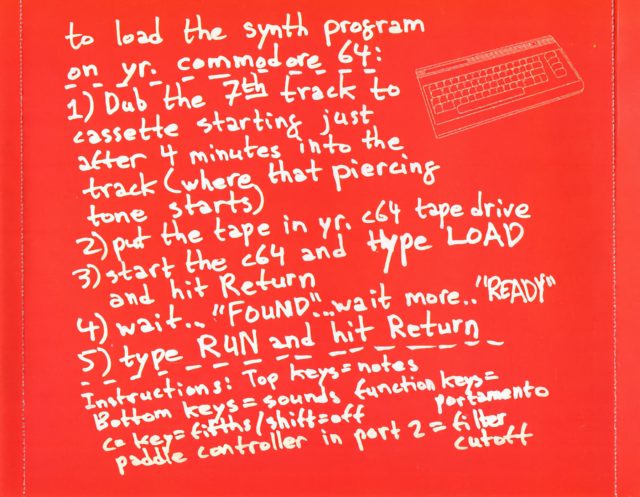 to load the synth program
on yr. commodore 64:
1) Dub the 7th track to
cassette starting just
after 4 minutes into the
track (where that piercing
tone starts)
2) put the tape in yr. c64 tape drive
3) start the c64 and type LOAD
and hit Return
4) wait.. "FOUND"..wait more.. "READY"
5) type RUN and hit Return
Instructions: Top keys = notes
Bottom keys = sounds function keys = portamento
c= key = fifths/shift = off
paddle controller in port 2 = filter cutoff